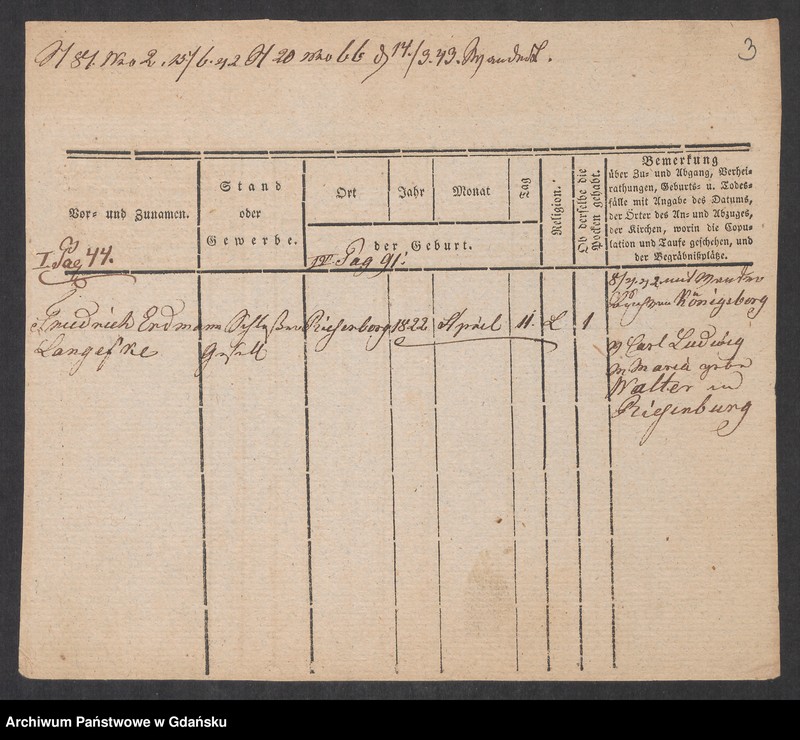 3
St 81. Nro 2. 15/6. 42 St 20 Nro 66 d 14/3. 43.
Vor- und Zunamen.
Stand
oder
Gewerbe.
Ort
Jahr
Monat
Tag
der Geburt.
Religion.
Ob derselbe die
Pocken gehabt.
Bemerkung
über Zu- und Abgang, Verhei-
rathungen, Geburts- u. Todes-
fälle mit Angabe des Datums,
der Örter des An- und Abzuges,
der Kirchen, worin die Copu-
lation und Taufe geschehen, und
der Begräbnißplätze.
I. Pag 44.
IV. Pag 91.
Friedrich Erdmann
Langefke
Schlosser
Gesell
Riesenborg
1822
April
11.
L
1
Königsborg
Carl Ludwig
Maria gebn
Walter in
Riesenburg
Archiwum Państwowe w Gdańsku